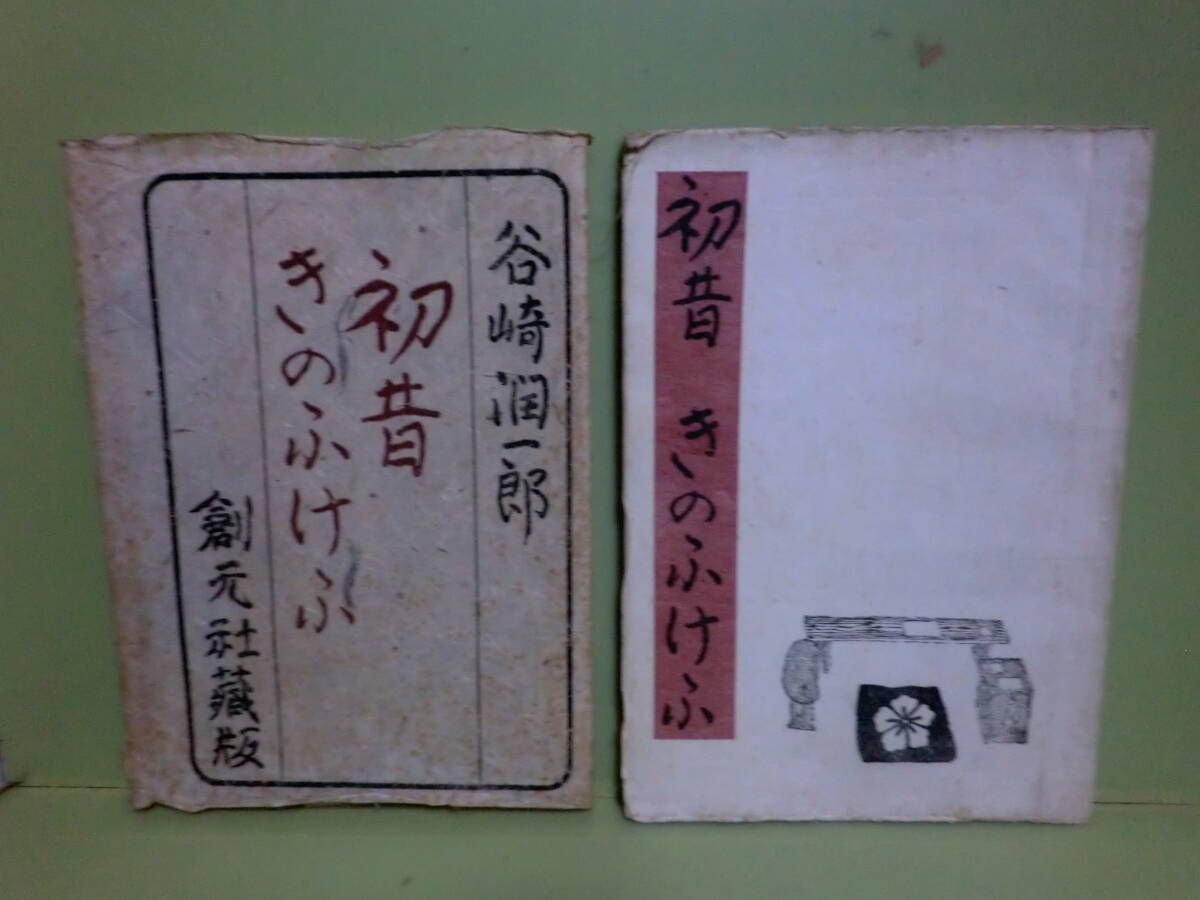 谷崎潤一郎
初昔
きのふけふ
創元社藏版
初昔 きのふけふ